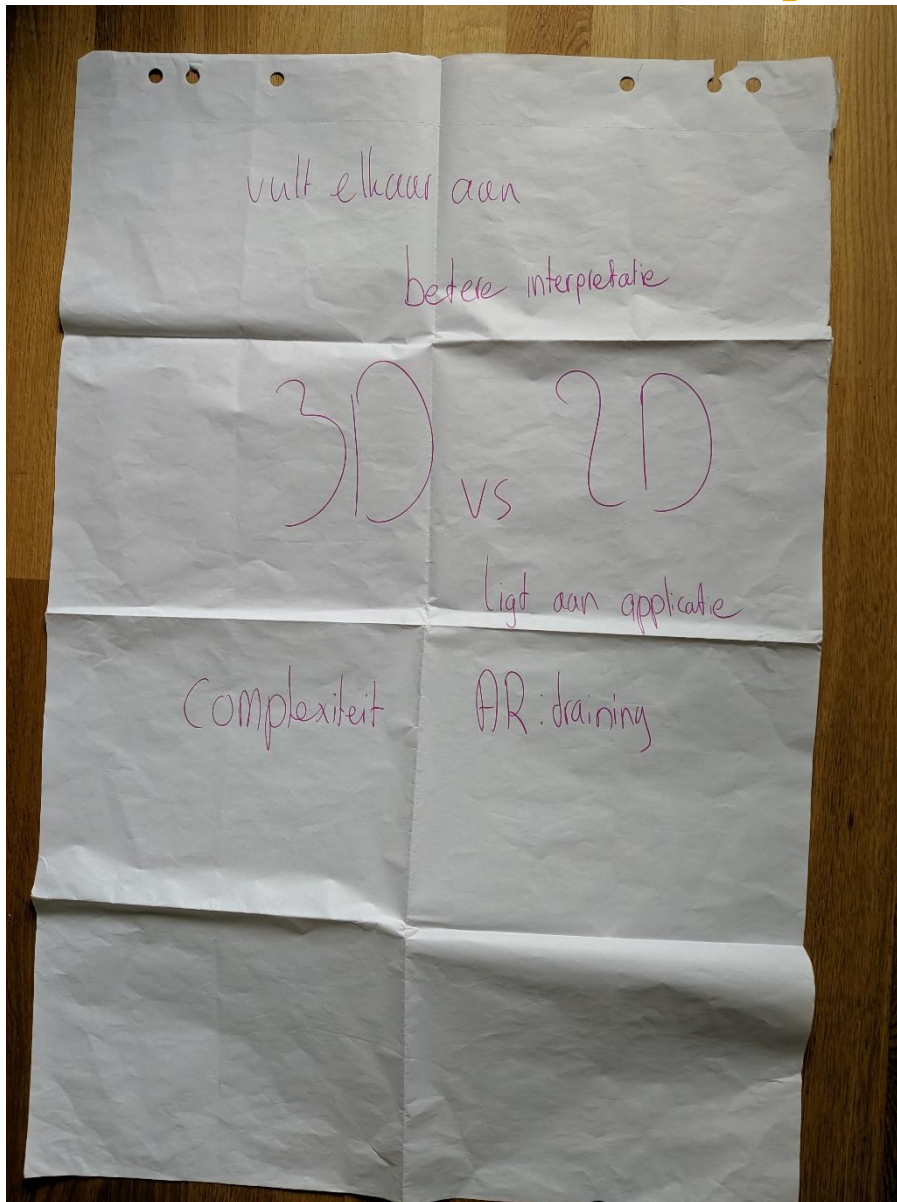 vult elkaar aan
betere interpretatie
3D vs 2D
ligt aan applicatie
Complexiteit
AR: training